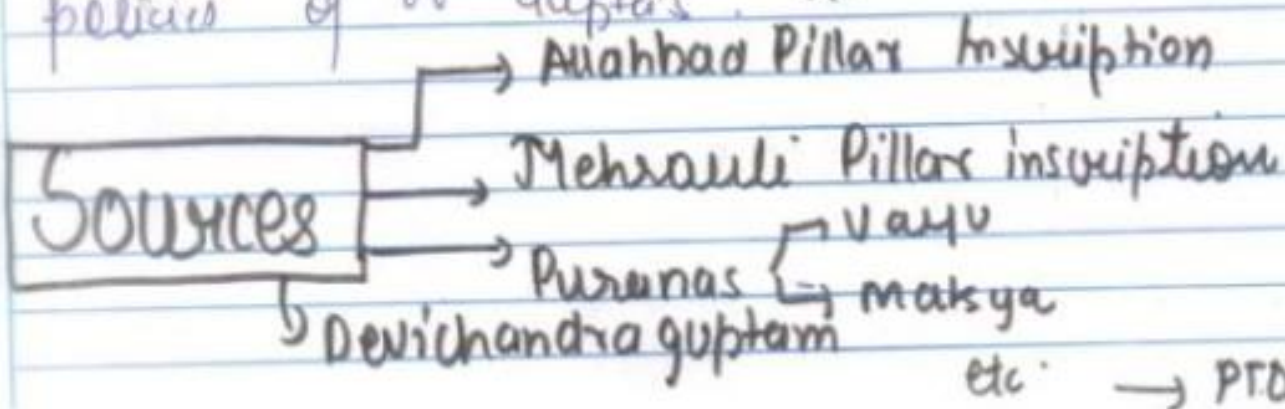 policies of Guptas.
Allahbad Pillar Inscription
Sources
Mehrauli Pillar inscription
Puranas
Vayu
Matsya
Devichandraguptam
etc. → PTO